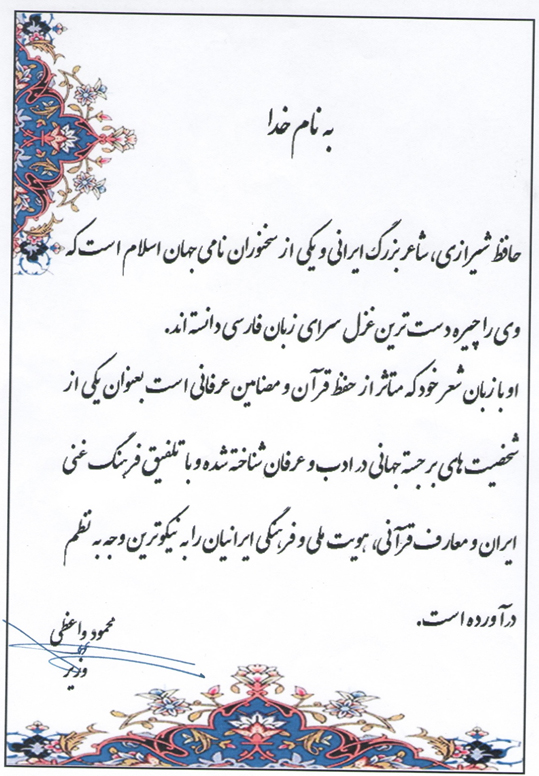 به نام خدا
حافظ شیرازی، شاعر بزرگ ایرانی و یکی از سخنوران نامی جهان اسلام است که
وی را چیره دست ترین غزل سرای زبان فارسی دانسته اند.
او با زبان شعر خود که متاثر از حفظ قرآن و مضامین عرفانی است بعنوان یکی از
شخصیت های برجسته جهانی در ادب و عرفان شناخته شده و با تلفیق فرهنگ غنی
ایران و معارف قرآنی، هویت ملی و فرهنگی ایرانیان را به نیکوترین وجه به نظم
درآورده است.
محمود واعظی
وزیر